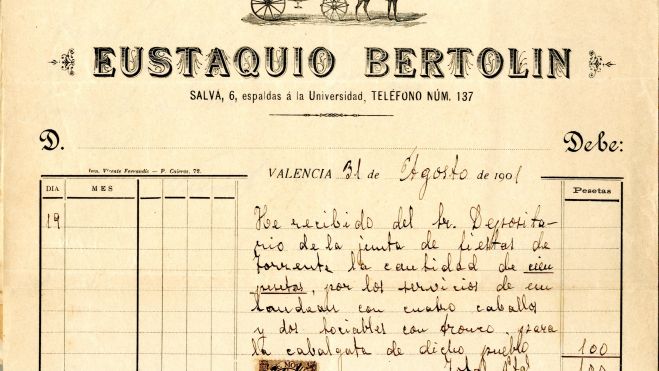 EUSTAQUIO BERTOLIN
SALVÁ, 6, espaldas á la Universidad, TELÉFONO NÚM. 137
D. Debe:
Imp. Vicente Ferrandis — P. Cajeros, 72.
VALENCIA 31 de Agosto de 1901
DIA MES Pesetas
19 He recibido del Sr. Deposita-
rio de la junta de fiestas de
torrente la cantidad de cien
pesetas, por los servicios de un
landeau con cuatro caballos
y dos sociables con tronco, para
la cabalgata de dicho pueblo 100
Total Ptas 100